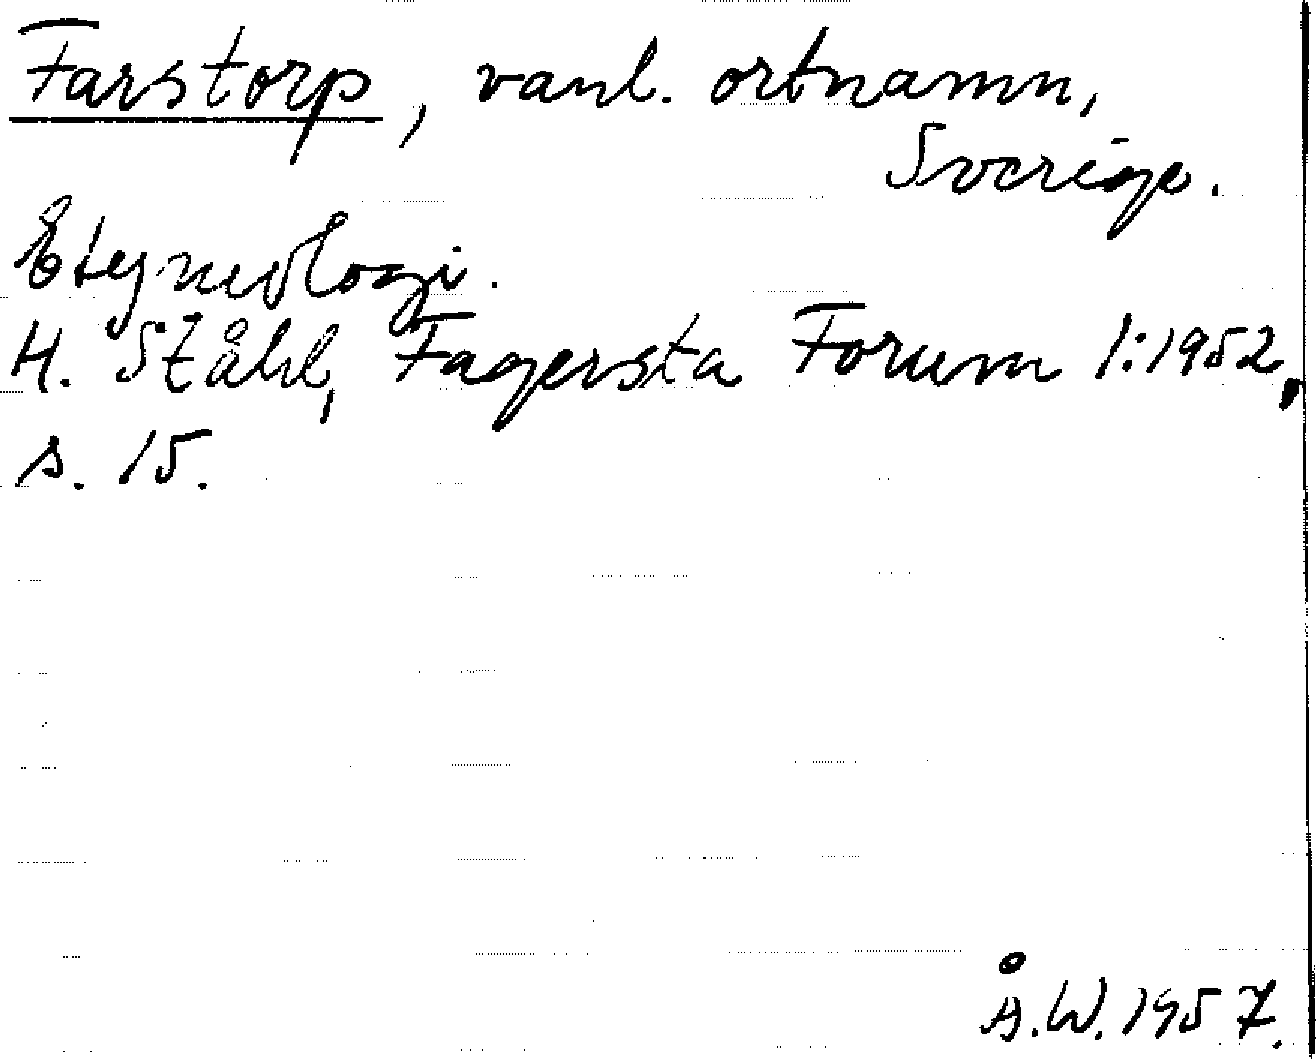 Farstorp, vanl. ortnamn,
Sverige.
Etymologi.
H. Ståhl, Fagersta Forum 1:1952,
s. 15.
Å.W. 1957.